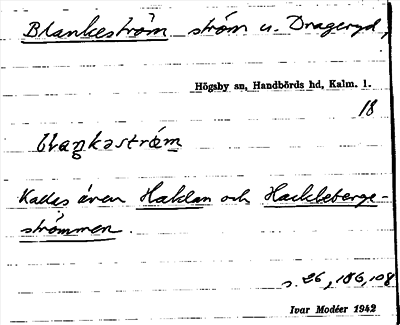 Blankeström ström u. Drageryd,
Högsby sn, Handbörds hd, Kalm. l.
18
blaŋkəström
Kallas även Haklan och Hackleberge-
strömmen.
s. 26, 186, 108
Ivar Modéer 1942